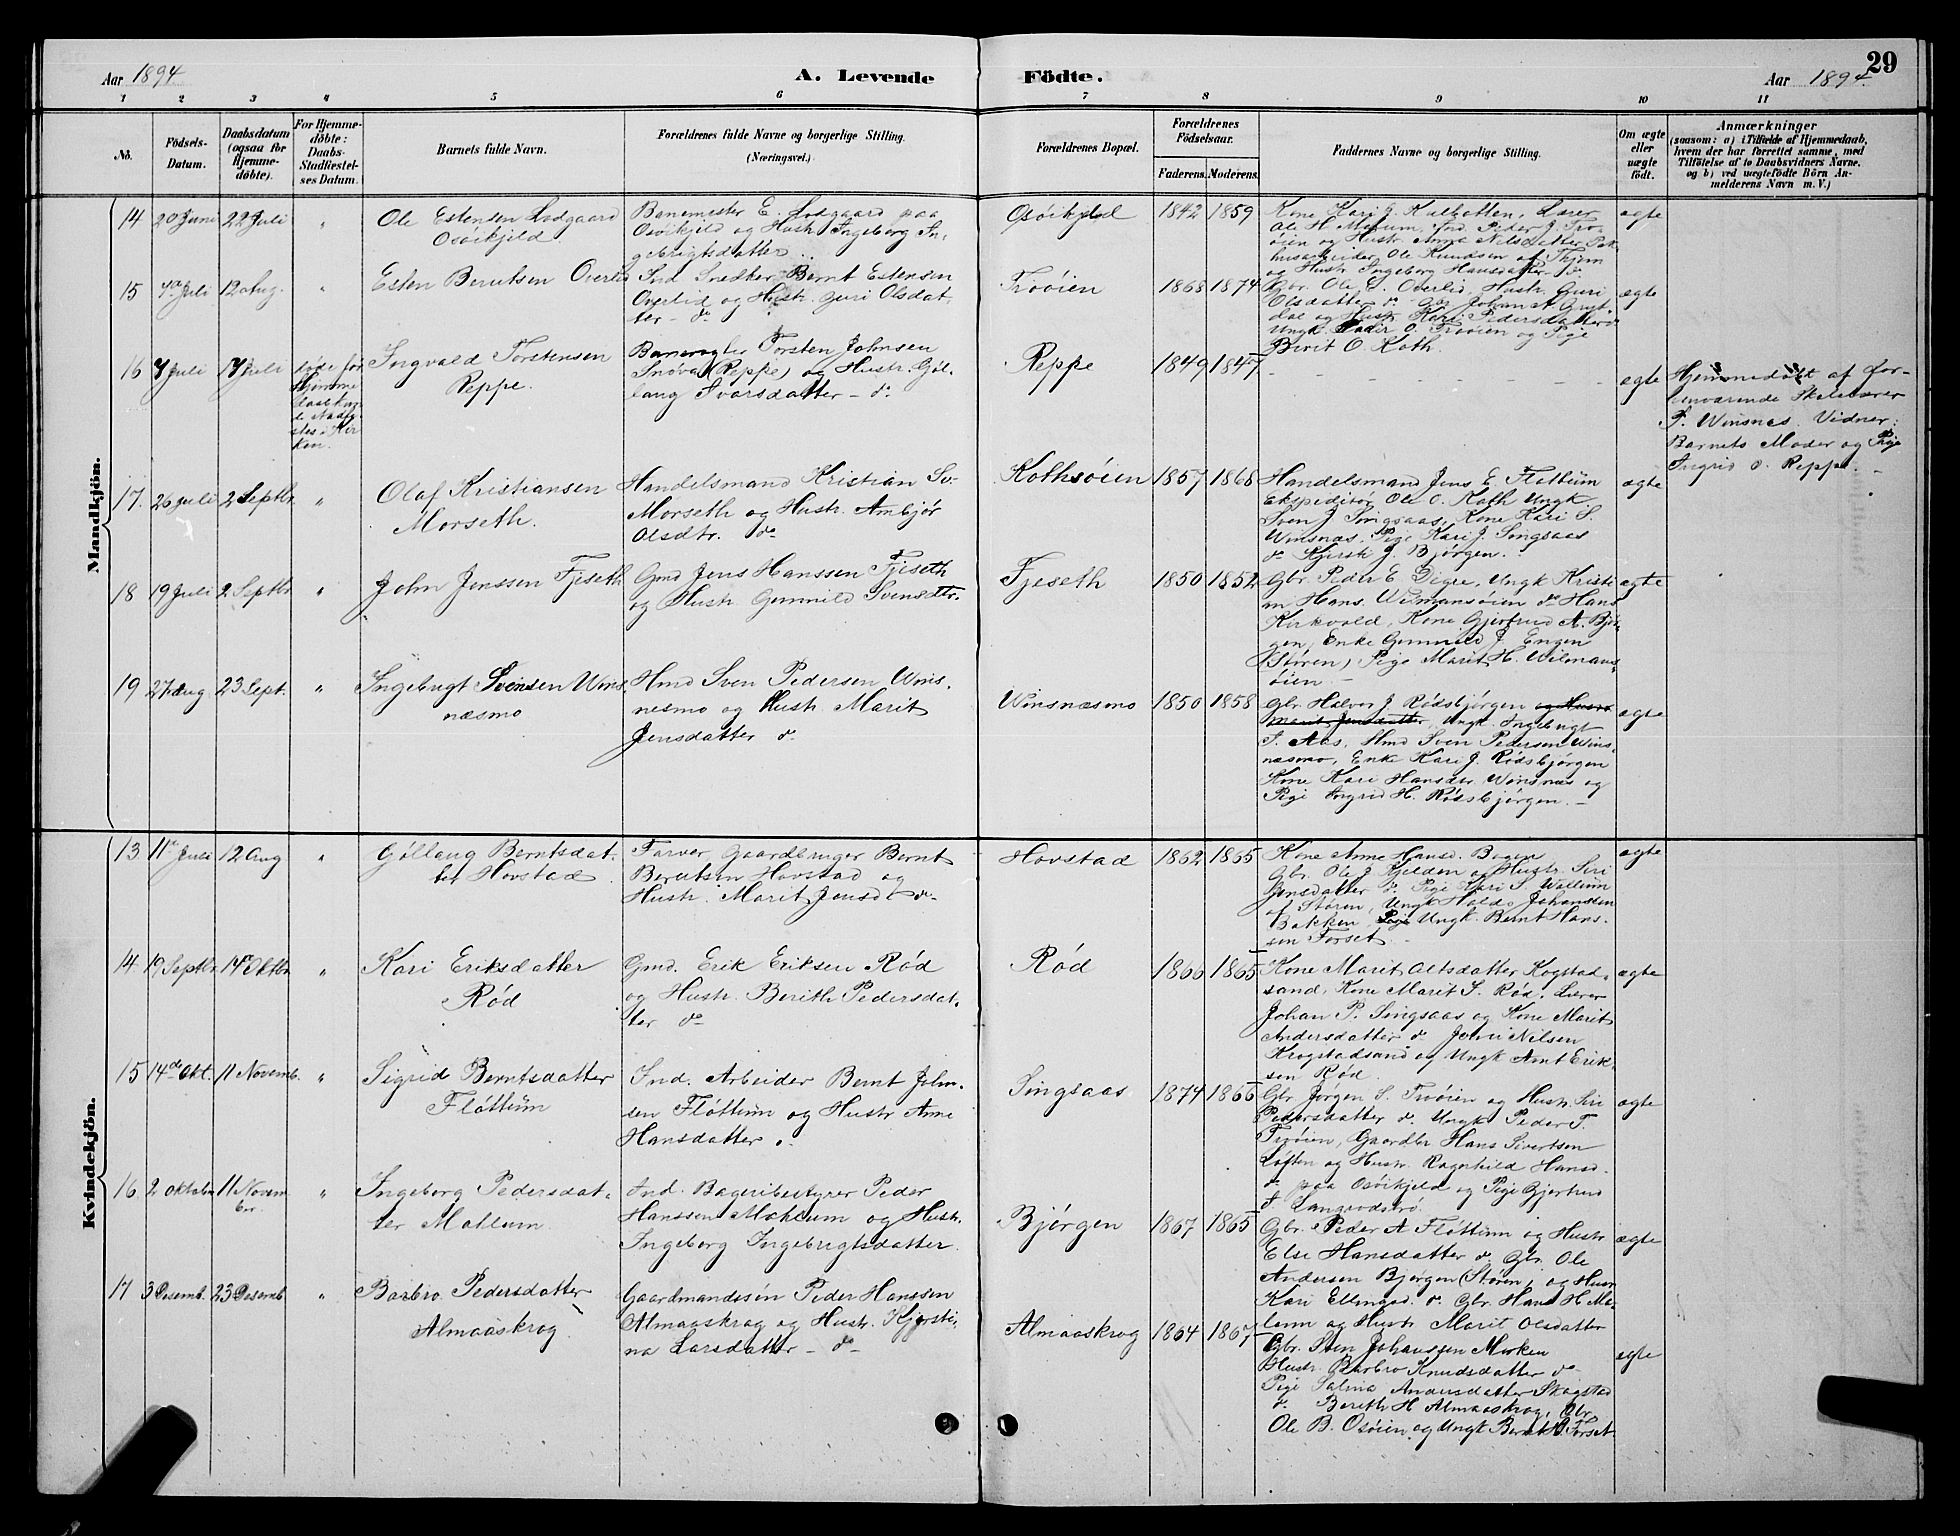 29
Aar 1894
A. Levende
Födte.
Aar 1894
1 2 3 4 5 6 7 8 9 10 11
No.
Födsels-
Datum.
Daabsdatum
(ogsaa for
Hjemme-
döbte).
For Hjemme-
döbte:
Daabs-
Stadfæstel-
ses Datum.
Barnets fulde Navn.
Forældrenes fulde Navne og borgerlige Stilling.
(Næringsvei.)
Forældrenes Bopæl.
Forældrenes
Födselsaar.
Faderens. Moderens.
Faddernes Navne og borgerlige Stilling.
Om ægte
eller
uægte
födt.
Anmærkninger
(saasom: a) i Tilfælde af Hjemmedaab,
hvem der har forrettet samme, med
Tilföielse af to Daabsvidners Navne,
og b) ved uægtefödte Börn An-
melderens Navn m. V.)
Mandkjön.
14 20 Juni 22 Juli "
Ole Estensen Lodgaard
Osöikjeld
Banemester E. Lodgaard paa
Osöikjeld og Hustr. Ingeborg In-
gebrigtsdatter
Osöikjeld
1842 1859
Kone Kari J. Kulbotten, Lærer
Ole H. Moeum, Ind. Peder J. Trö-
öien og Hustr. Anna Nilsdatter, Pak-
husarbeider Ole Knudsen af Thjem
og Hustr. Ingeborg Hansdatter do
ægte
15 4de Juli 12 Aug. "
Esten Berntsen Overlid
Ind Snedker Bernt Estensen
Overlid og Hustr. Guri Olsdat-
ter - do
Trööien
1868 1874
Gbr. Ole E. Overlid, Hustr. Guri
Olsdatter do Gbr. Johan A
dal og Hustr. Kari Pedersdatter do
Ungk. O. Tröien og Pige
Berit O Koth.
ægte
16 7 Juli 17 Juli
döde för
Hjemme
daab kun-
de Stadfæ-
stes i Kir-
ken.
Ingvald Torstensen
Reppe.
Banevogter Torsten Johnsen
(Reppe) og Hustr. Göl-
laug Ivarsdatter - do
Reppe
1849 1847
ægte
Hjemmedöbt af for-
henværende Skolelærer
P. Winsnes. Vidner:
Barnets Moder og Pige
Ingrid O. Reppe. -
17. 26 Juli 2 Septbr "
Olaf Kristiansen
Morseth.
Handelsmand Kristian Sv.
Morseth og Hustr. Ambjör
Olsdtr. do
Kothsöien
1857 1868
Handelsmand Jens E. Flöttum
Ekspeditör Ole O. Koth Ungk.
Sven J. Singsaas, Kone Kari S.
Winsnæs, Pige Kari J. Singsaas
do Kjersti J. Bjørgen.
ægte
18 19 Juli 2 Septbr "
John Jenssen Fjeseth
Gmd Jens Hanssen Fjeseth
og Hustr. Gunnild Svensdtr.
Fjeseth
1850 1852
Gbr. Peder E Digre, Ungk Kristi-
an Hans. Wilmansöien do Hans
Kirkvold, Kone Gjertrud A. Bjør-
gen, Enke Gunnild J Engen
(Støren) Pige Marit H. Wilmans-
öien -
ægte
19 27 Aug 23 Sept. "
Ingebrigt Svensen Wins-
næsmo
Hmd Sven Pedersen Wins-
nesmo og Hustr. Marit
Jensdatter do
Winsnæsmo
1850 1858
Gbr. Halvor J. Rødsbjørgen og Hustr
Marit Jensdatter, Ungk. Ingebrigt
J. Aas, Hmd Sven Pedersen Wins-
næsmo, Enke Kari J. Rødsbjørgen
Kone Kari Hansdtr Winsnæs og
Pige Ingrid H. Rødsbjørgen. -
ægte
Kvindekjön.
13. 11te Juli 12 Aug "
Göllaug Berntsdat-
ter Hovstad
Farver Gaardbruger Bernt
Berntsen Hovstad og
Hustr. Marit Jensd do
Hovstad
1862 1865
Kone Anne Hansd. Bogen
Gbr. Ole J Kjelden og Hustr. Siri
Jensdatter do Pige Kari S Wollum
af Støren, Ungk Johansen
Bakken Pige Ungk. Bernt Hans-
sen Forset. -
ægte
14. 19 Septbr 14de Oktbr "
Kari Eriksdatter
Rød
Gmd. Erik Eriksen Rød
og Hustr. Berith Pedersdat-
ter do
Rød
1866 1865
Kone Marit Olsdatter Kogstad-
sand, Kone Marit S. Rød, Lærer
Johan P. Singsaas og Kone Marit
Andersdatter do John Nilsen
Krogstadsand og Ungk Arnt Erik-
sen Rød.
ægte
15 14de Okt. 11 Novemb. "
Sigrid Berntsdatter
Fløttum
Ind. Arbeider Bernt John-
sen Fløttum og Hustr Anne
Hansdatter do
Singsaas
1874 1866
Gbr Jørgen S. Tröien og Hustr. Siri
Pedersdatter do Ungk Peder T.
Tröien, Gaardbr Hans Sivertsen
Løften og Hustr. Ragnhild Hansd.
do paa Osöikjeld og Pige Gjertrud
J. Langvodströ.
ægte
16. 2 Oktober 11 Novem-
ber. "
Ingeborg Pedersdat-
ter Moklum
Ind. Bageribestyrer Peder
Hanssen Moklum og Hustr.
Ingeborg Ingebrigtsdatter.
Bjørgen
1867 1865
Gbr. Peder A Fløttum og Hustr
Else Hansdatter do Gbr. Ole
Andersen Bjørgen (Støren) og Hustr
Kari Ellingsd. do Gbr. Hans H Mo-
lum og Hustr Marit Olsdatter
ægte
17 3 Desemb. 23 Desemb "
Barbro Pedersdatter
Almaaskrog
Gaardmandssøn Peder Hanssen
Almaaskrog og Hustr. Kjersti-
na Larsdatter - do -
Almaaskrog
1864 1867
Gbr. Sten Johanssen Morken
Hustr. Barbro Knudsdatter do
Pige Salina Andersdatter Skogstad
do Berith H Almaaskrog, Gbr.
Ole B. Osöien og Ungk Bernt H. Forset.
ægte